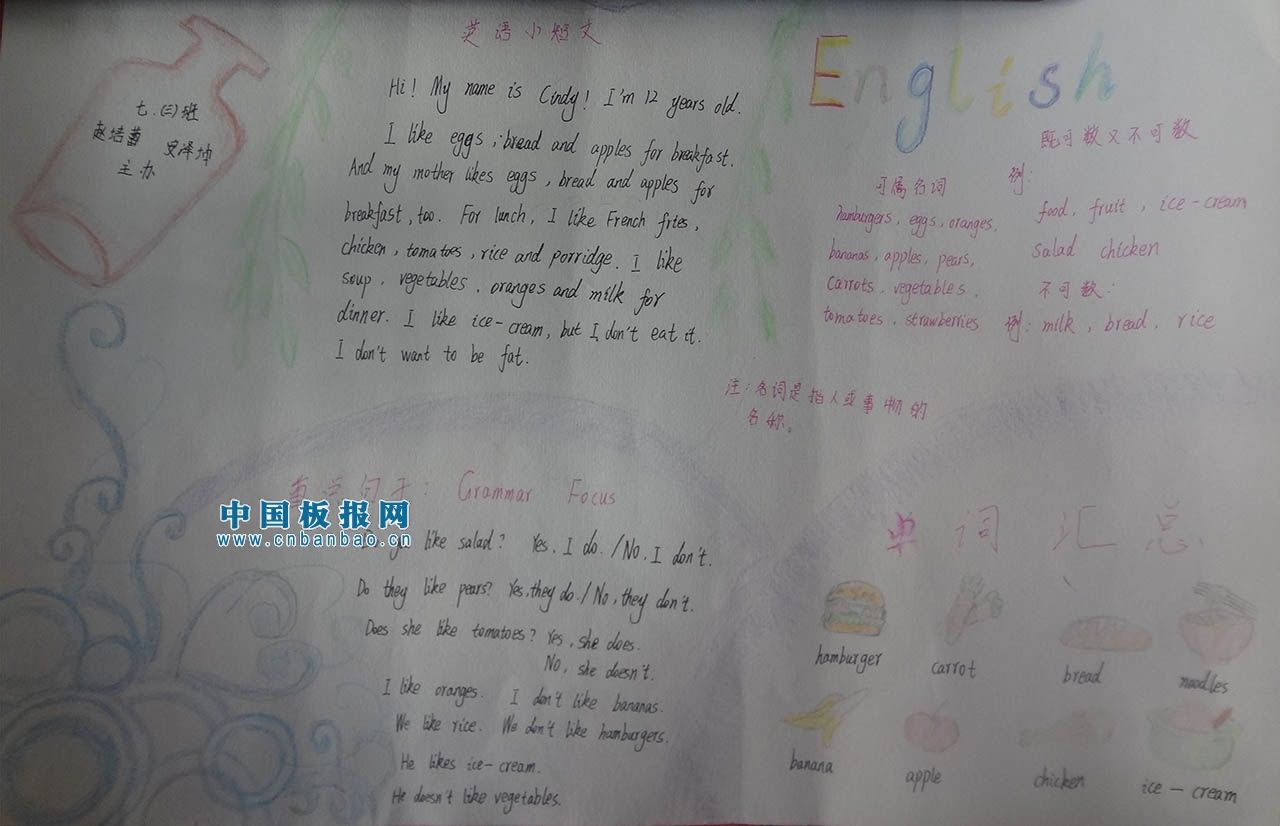 七.(三)班
赵培蕾
主办
英语小短文
Hi! My name is Cindy! I'm 12 years old.
I like eggs, bread and apples for breakfast.
And my mother likes eggs, bread and apples for
breakfast, too. For lunch, I like French fries,
chicken, tomatoes, rice and porridge. I like
soup, vegetables, oranges and milk for
dinner. I like ice-cream, but I don't eat it.
I don't want to be fat.
English
可属名词
hamburgers, eggs, oranges,
bananas, apples, pears,
carrots, vegetables,
tomatoes, strawberries
既可数又不可数
例:
food, fruit, ice-cream
salad chicken
不可数:
例: milk, bread, rice
注:名词是指人或事物的
名称。
句子: Grammar Focus
中国板报网
www.cnbanbao.cn
like salad? Yes, I do. /No, I don't.
Do they like pears? Yes, they do. / No, they don't.
Does she like tomatoes? Yes, she does.
No, she doesn't.
I like oranges. I don't like bananas.
We like rice. We don't like hamburgers.
He likes ice-cream.
He doesn't like vegetables.
单词汇总
hamburger
carrot
bread
noodles
banana
apple
chicken
ice-cream